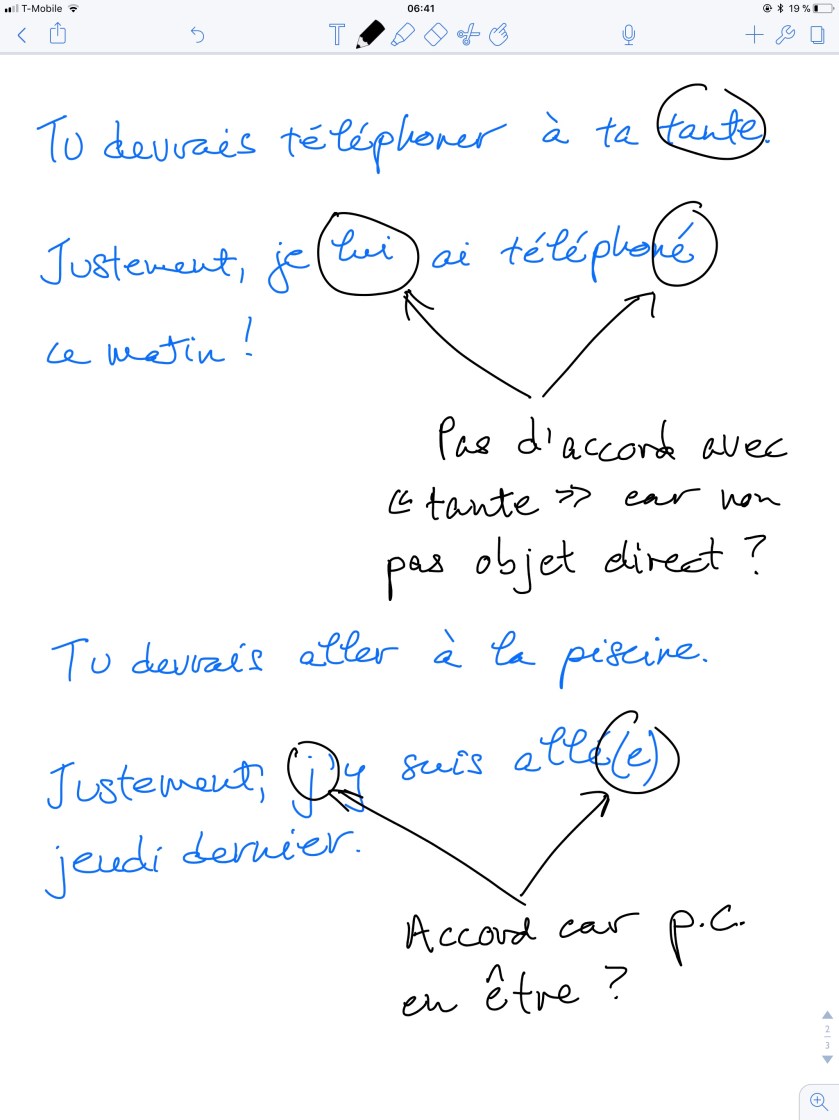 T-Mobile 06:41 19 %
T
Tu devrais téléphoner à ta tante.
Justement, je lui ai téléphoné
ce matin !
Pas d'accord avec
« tante » car non
pas objet direct ?
Tu devrais aller à la piscine.
Justement, j'y suis allé(e)
jeudi dernier.
Accord car p.c.
en être ?
2
3